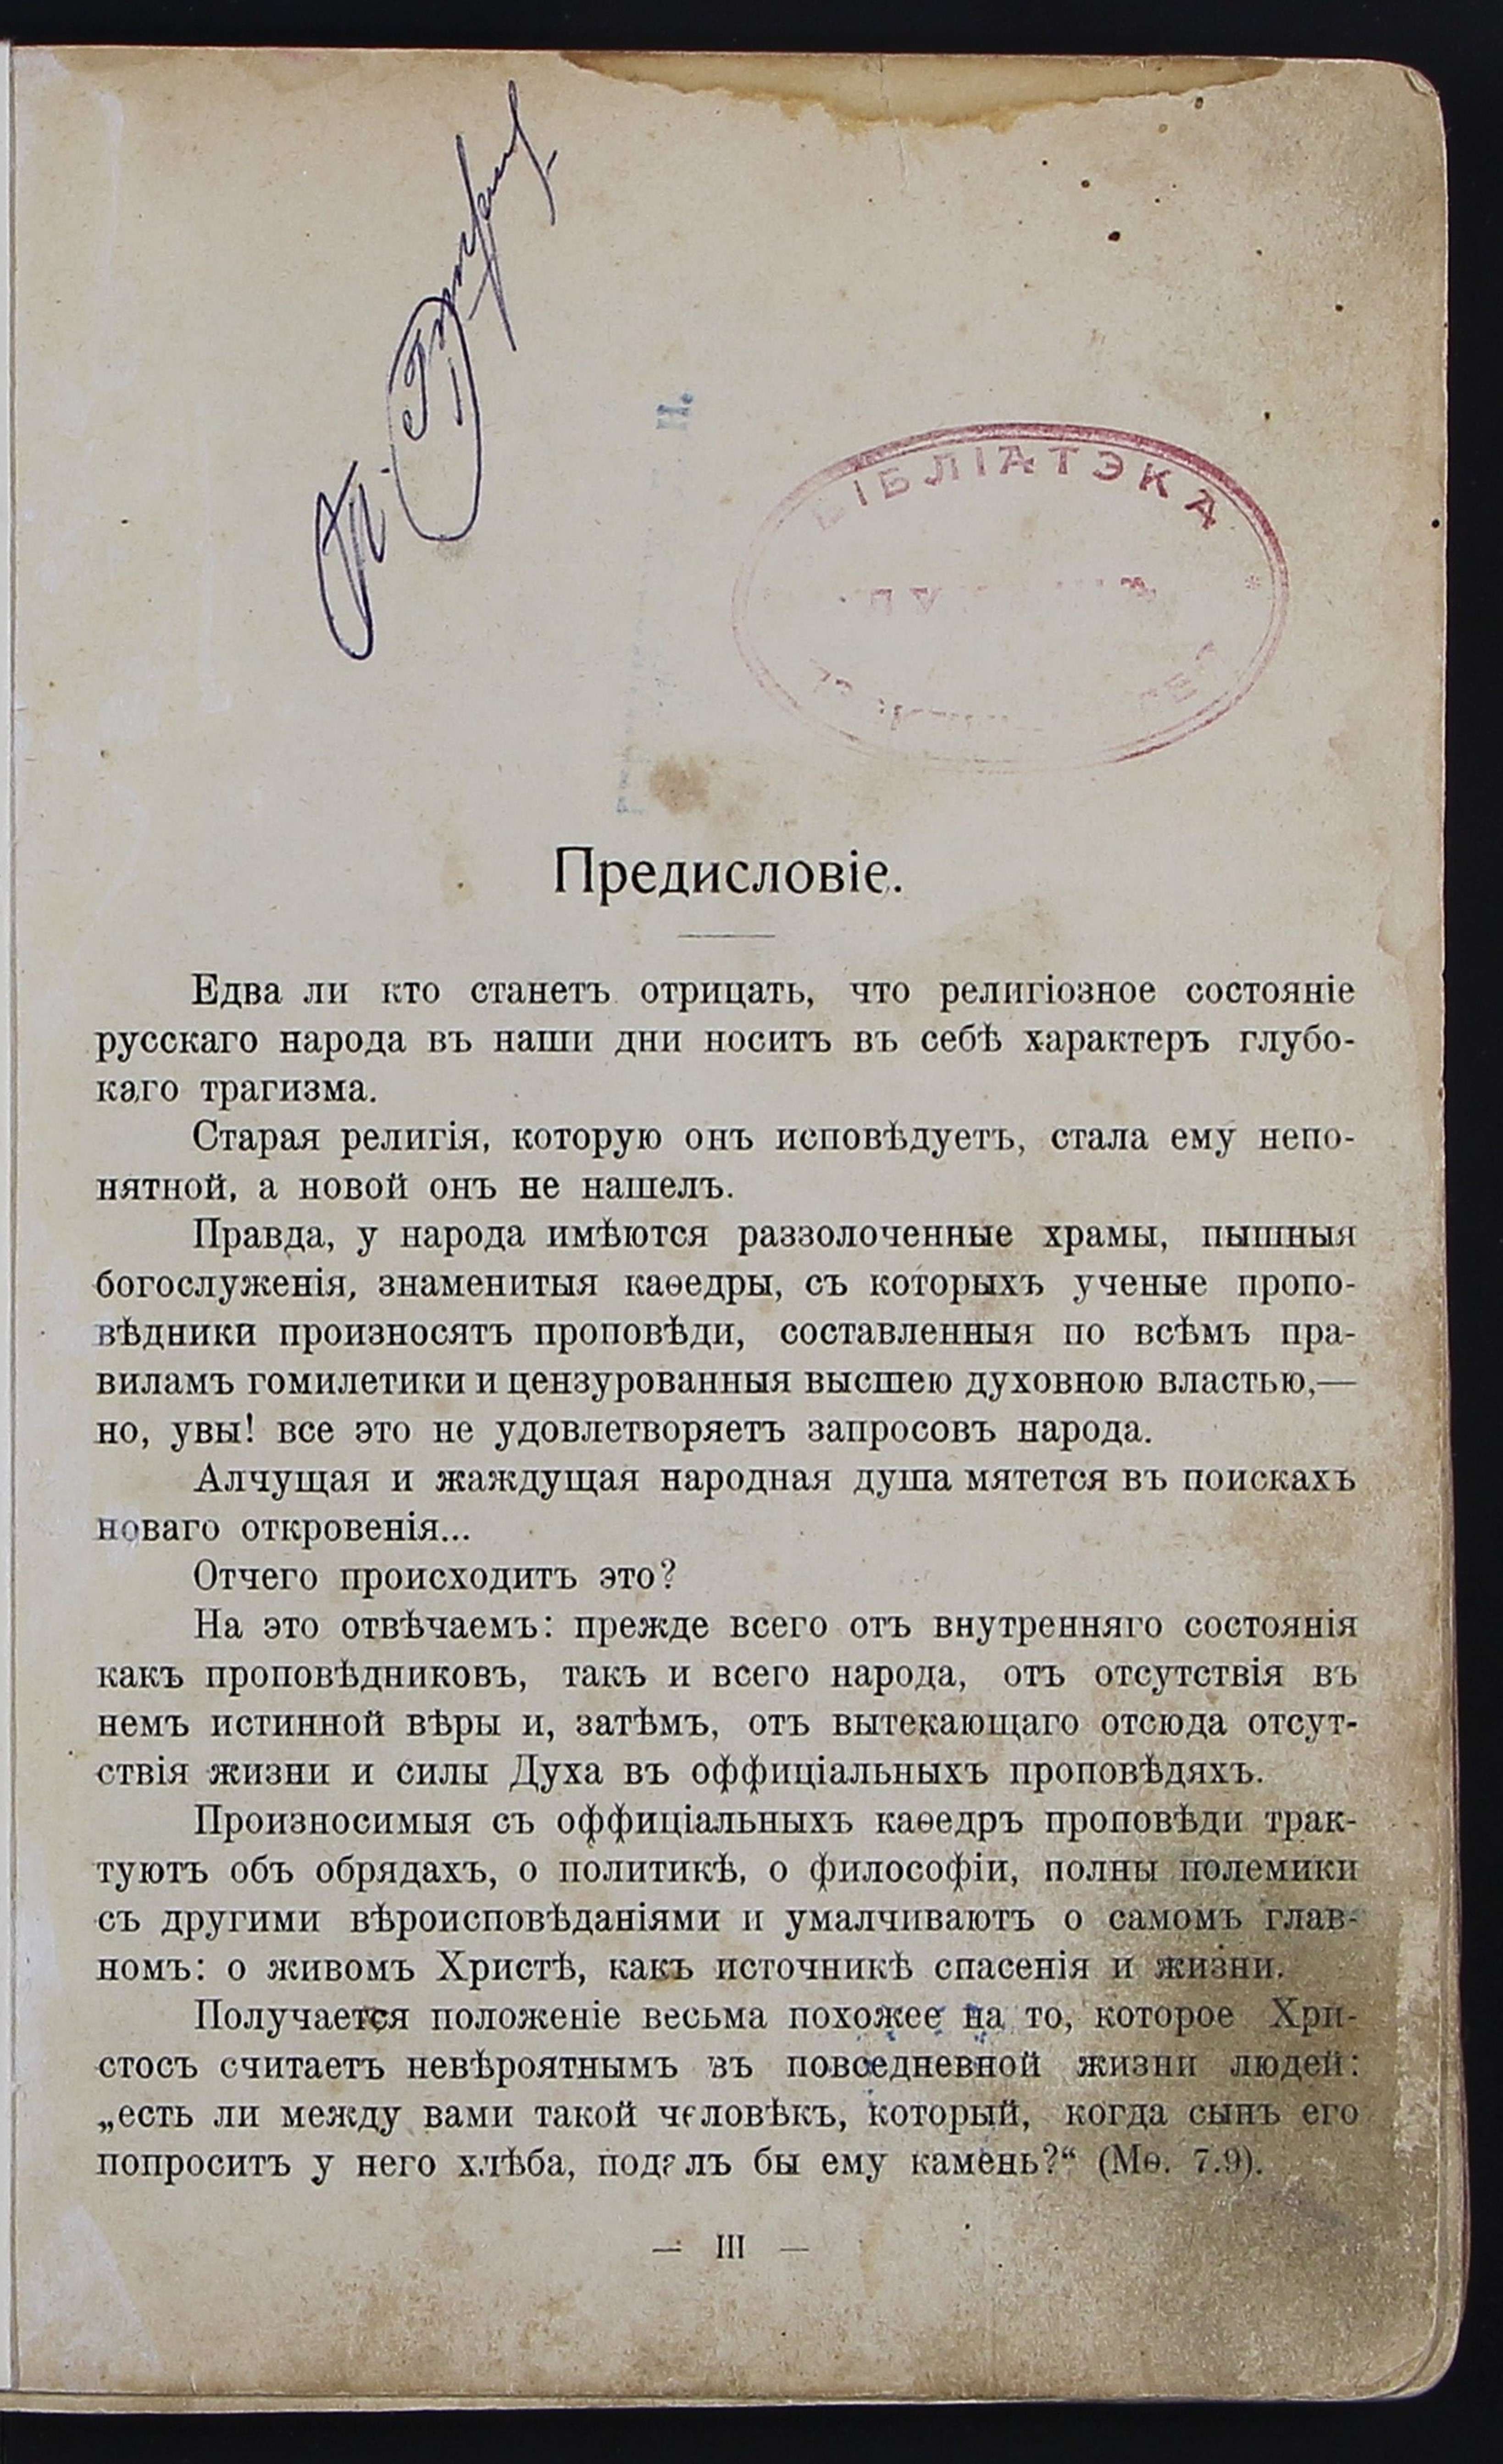 БІБЛІАТЭКА
Предисловіе.
Едва ли кто станетъ отрицать, что религіозное состояніе
русскаго народа въ наши дни носитъ въ себѣ характеръ глубо-
каго трагизма.
Старая религія, которую онъ исповѣдуетъ, стала ему непо-
нятной, а новой онъ не нашелъ.
Правда, у народа имѣются раззолоченные храмы, пышныя
богослуженія, знаменитыя каѳедры, съ которыхъ ученые пропо-
вѣдники произносятъ проповѣди, составленныя по всѣмъ пра-
виламъ гомилетики и цензурованныя высшею духовною властью,—
но, увы! все это не удовлетворяетъ запросовъ народа.
Алчущая и жаждущая народная душа мятется въ поискахъ
новаго откровенія...
Отчего происходитъ это?
На это отвѣчаемъ: прежде всего отъ внутренняго состоянія
какъ проповѣдниковъ, такъ и всего народа, отъ отсутствія въ
немъ истинной вѣры и, затѣмъ, отъ вытекающаго отсюда отсут-
ствія жизни и силы Духа въ оффиціальныхъ проповѣдяхъ.
Произносимыя съ оффиціальныхъ каѳедръ проповѣди трак-
туютъ объ обрядахъ, о политикѣ, о философіи, полны полемики
съ другими вѣроисповѣданіями и умалчиваютъ о самомъ глав-
номъ: о живомъ Христѣ, какъ источникѣ спасенія и жизни.
Получается положеніе весьма похожее на то, которое Хри-
стосъ считаетъ невѣроятнымъ въ повседневной жизни людей:
„есть ли между вами такой человѣкъ, который, когда сынъ его
попроситъ у него хлѣба, подалъ бы ему камень?“ (Мѳ. 7.9).
— III —